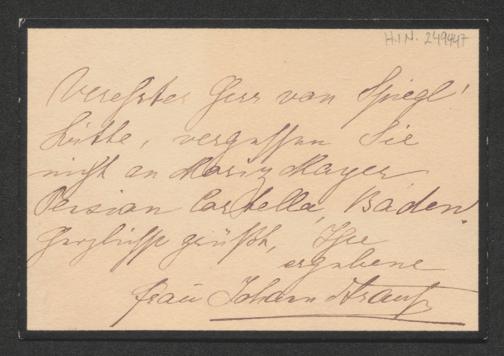 H.I.N. 249447
Verehrter Herr von Spiegl!
Bitte, vergessen Sie
nicht an Moriz Mayer
Pension Castella, Baden.
Herzlichst grüßt, Ihre
ergebene
Frau Johann Strauß